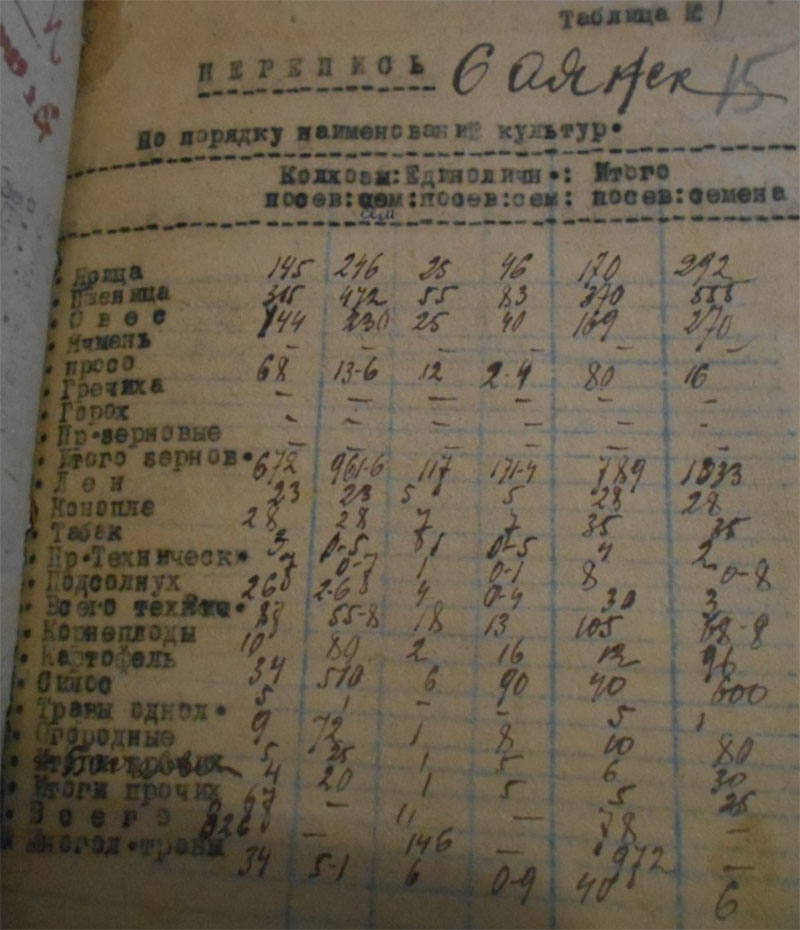 Таблица №
ПЕРЕПИСЬ 15
По порядку наименований культур.
Колхозы:Единоличн.: Итого
посев:сем:посев:сем: посев:семена
сем
Ярица 145 246 25 46 170 292
Пшеница 315 472 55 83 370 555
Овес 144 230 25 40 169 270
Ячмень – – – – – –
просо 68 13-6 12 2-4 80 16
Гречиха – – – – – –
Горох – – – – – –
Пр.зерновые – – – – – –
Итого зернов. 672 961-6 117 171-4 789 1133
Лен 23 23 5 5 28 28
Конопле 28 28 7 7 35 35
Табак 3 0-5 0-5 4
Пр.Техническ. 7 0-7 1 0-1 8 0-8
Подсолнух 26 2-6 4 0-4 30 3
Всего техн. 55-8 18 13 105 68-8
Корнеплоды 10 80 2 16 12 96
Картофель 34 510 6 90 40 600
Силос 5 1 – – 5 1
Травы однол. 9 72 1 8 10 80
Огородные 5 25 1 5 6 30
4 20 1 5 5 25
Итоги прочих 67 – 11 – 78 –
Всего 826 – 146 – 972 –
Многол.травы 34 5-1 6 0-9 40 6